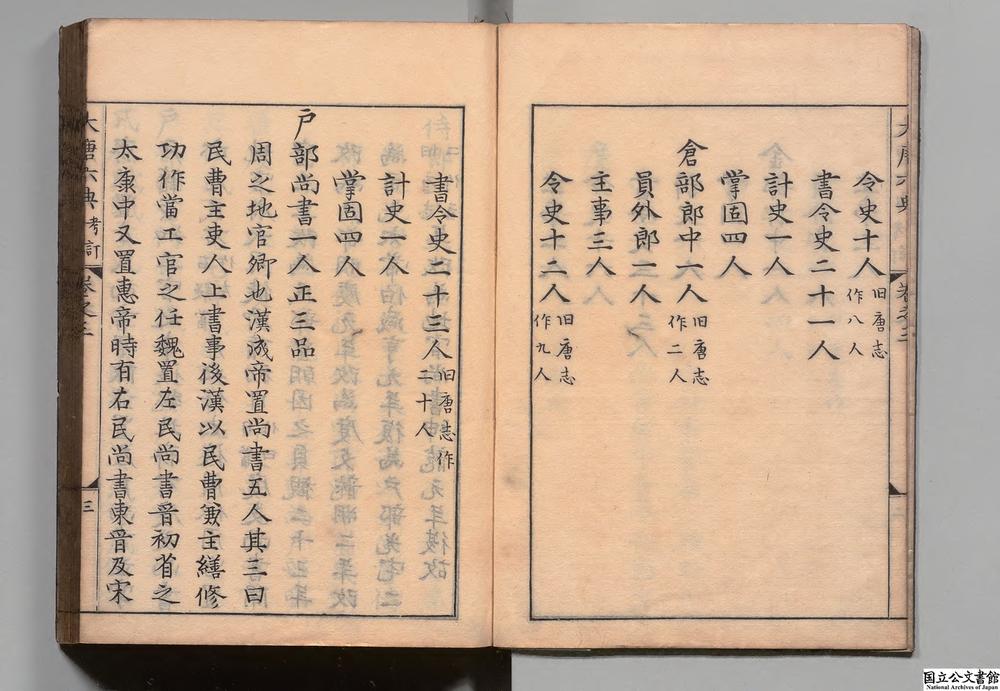 令史十人旧唐志作八人
書令史二十一人
計史一人
掌固四人
倉部郎中一人旧唐志作二人
員外郎一人
主事三人
令史十二人旧唐志作九人
書令史二十三人旧唐志作二十人
計史一人
掌固四人
戶部尚書一人正三品
周之地官卿也漢成帝置尚書五人其三曰
民曹主吏人上書事後漢以民曹兼主繕修
功作當工官之任魏置左民尚書晉初省之
太康中又置惠帝時有右民尚書東晉及宋
大唐六典考訂 卷之三 三
国立公文書館
National Archives of Japan